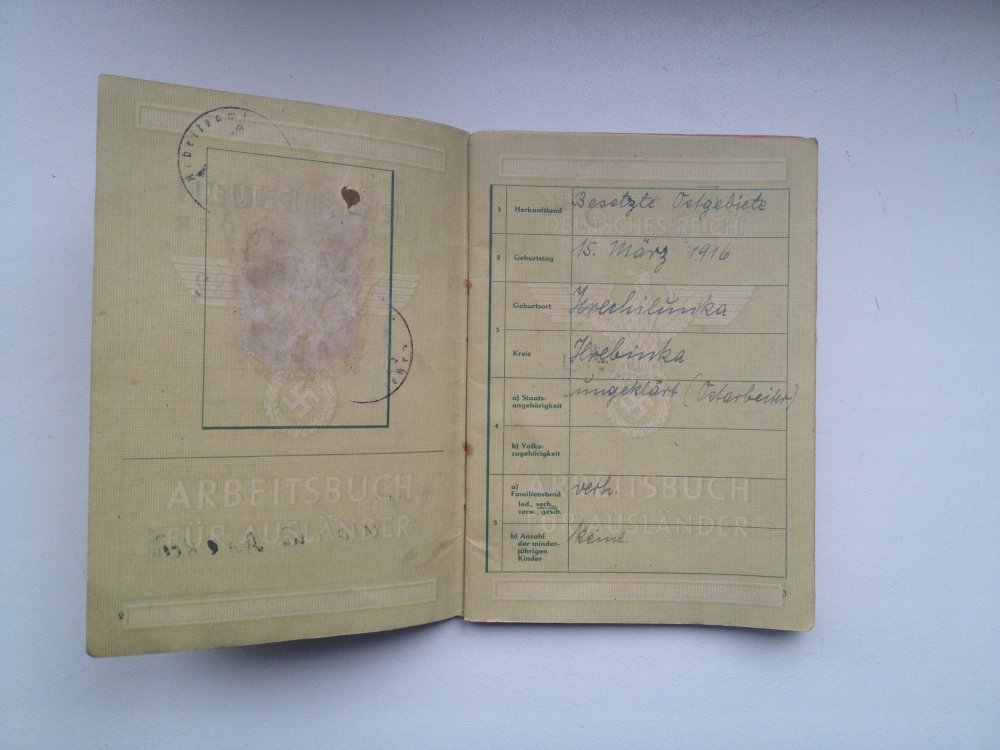 Arbeitsam
ARBEITSBUCH
FÜR AUSLÄNDER
2
DEUTSCHES REICH
1 Herkunftland Besetzte Ostgebiete
2 Geburtstag 15. März 1916
3 Geburtsort Hrechilunka
Kreis Hrebinka
4 a) Staats-
angehörigkeit ungeklärt (Ostarbeiter)
b) Volks-
zugehörigkeit
5 a)
Familienstand verh.
led., verh.,
verw., gesch.
b) Anzahl keine
der minder-
jährigen
Kinder
ARBEITSBUCH
FÜR AUSLÄNDER
3